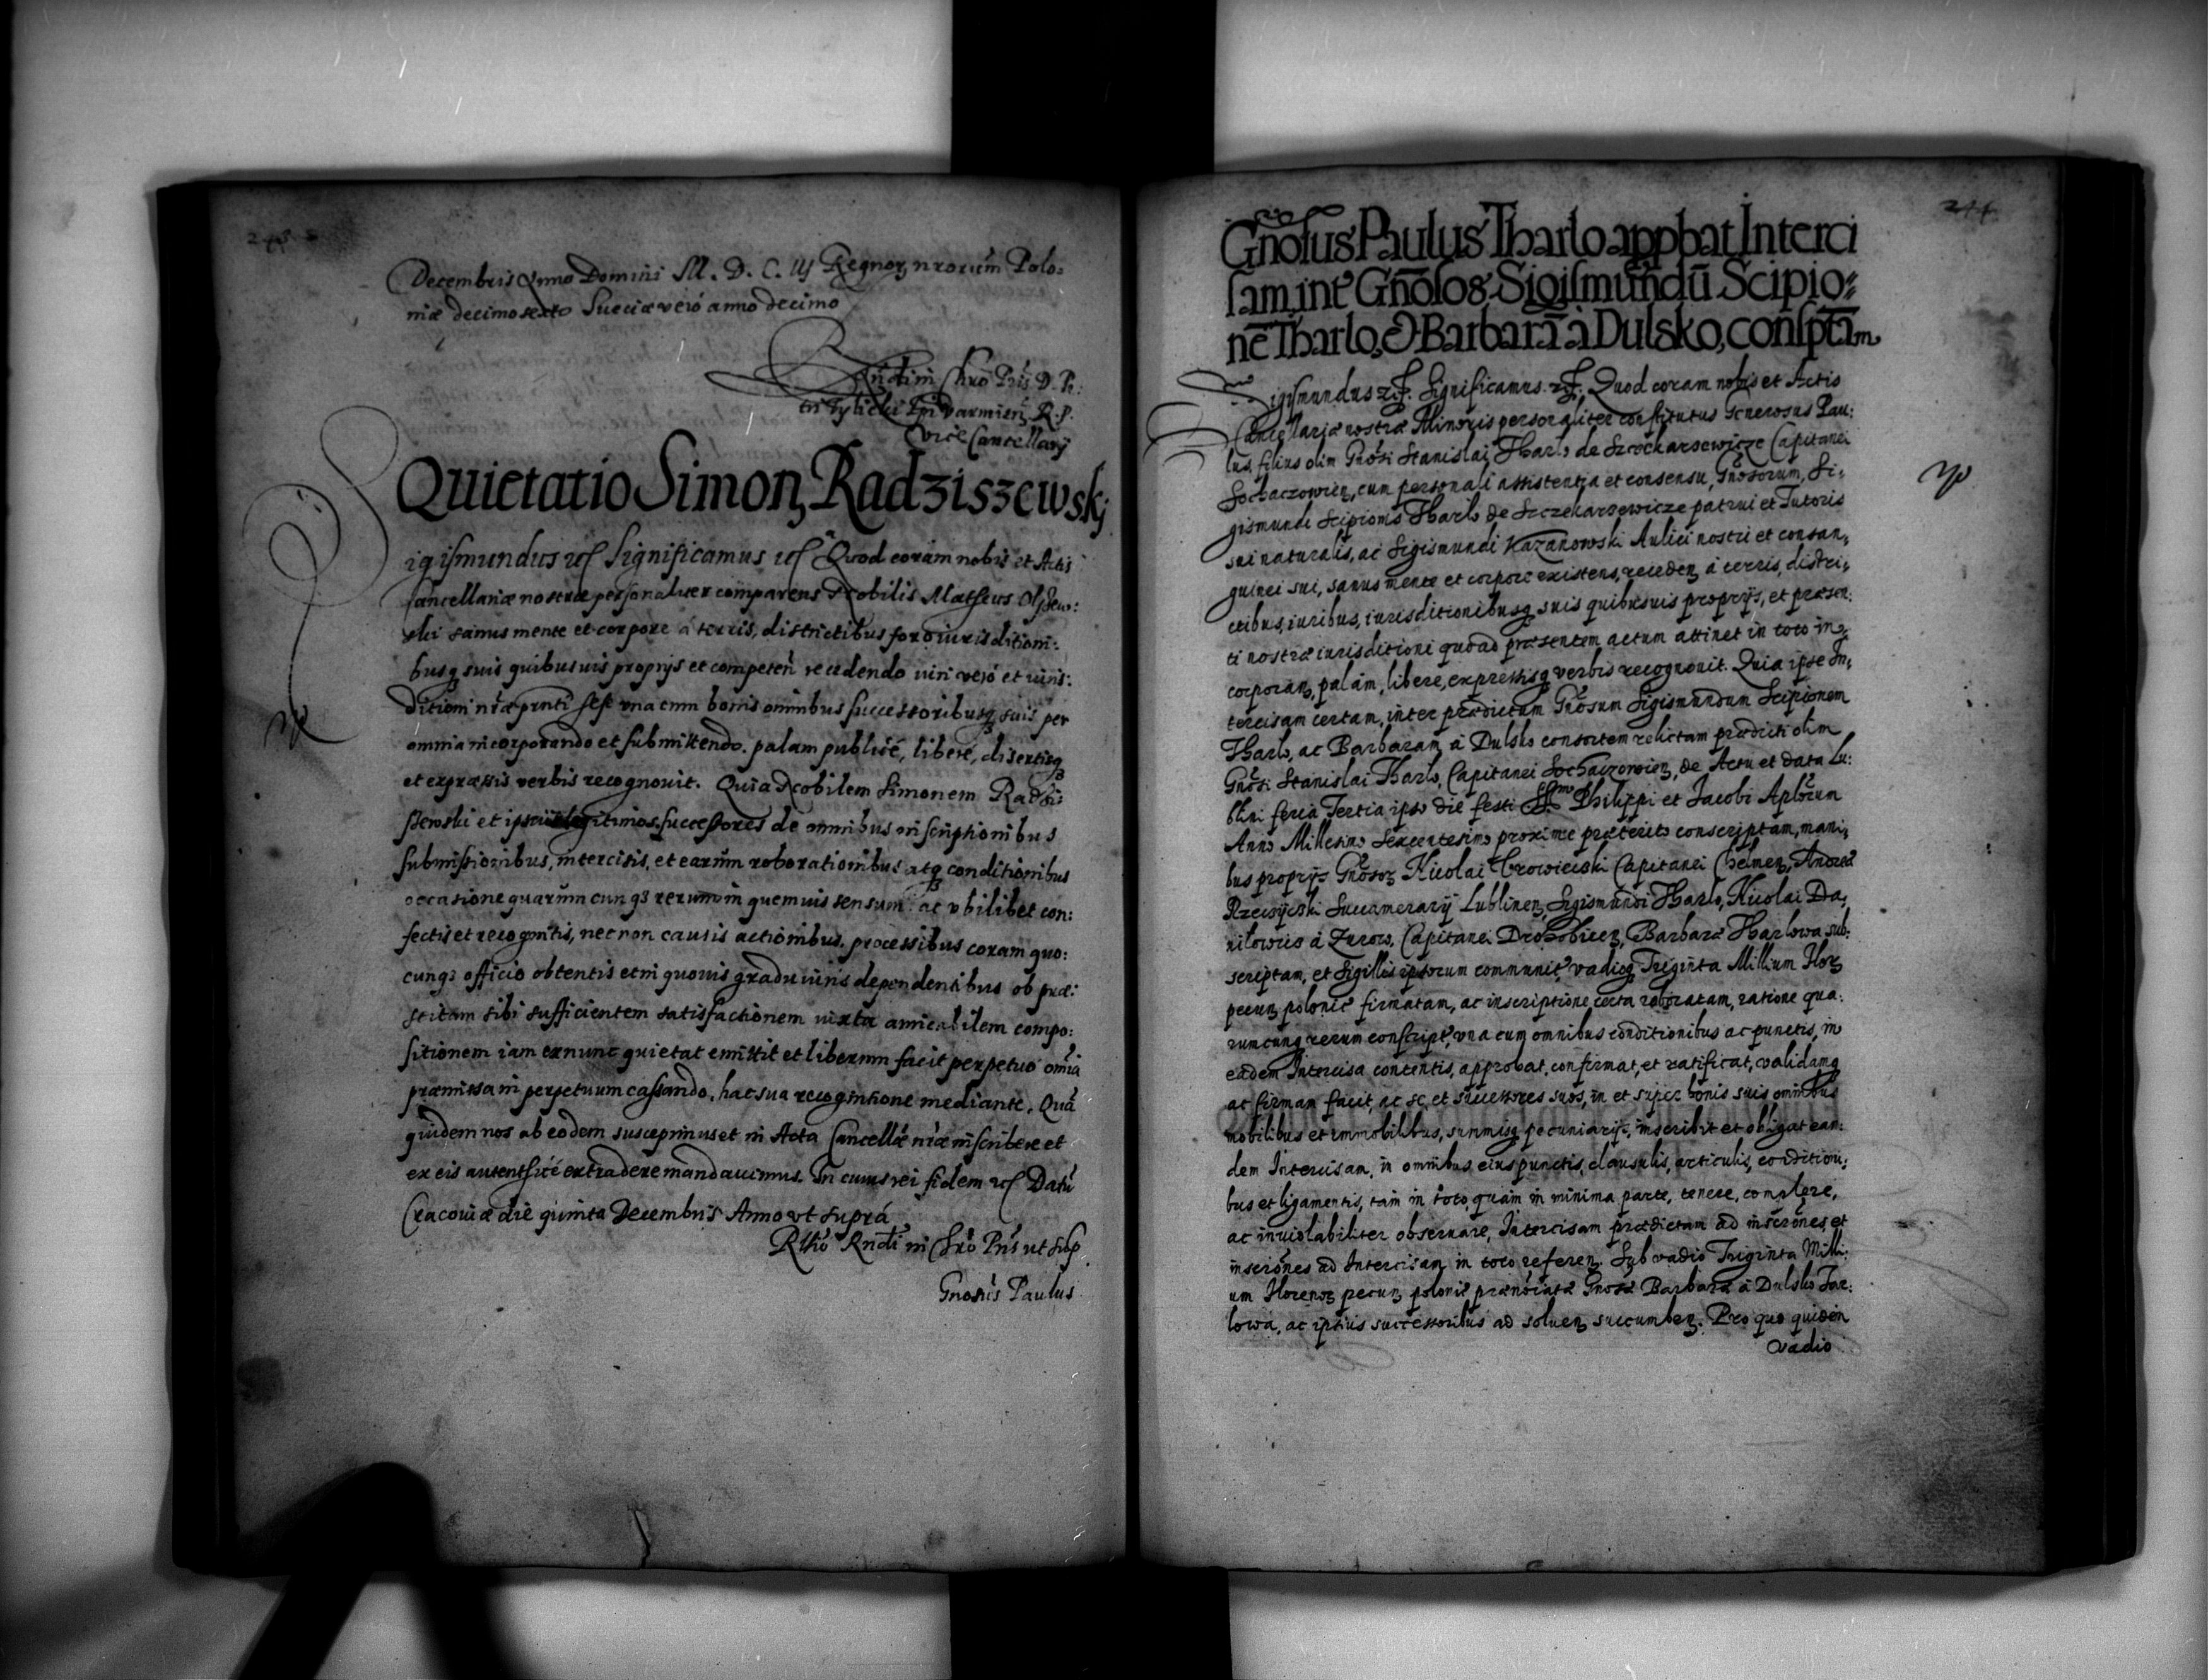 243
Decembris Anno Domini M. D. C. IIJ Regnorꝫ nrorum Polo:
niæ decimosexto Sueciæ veró anno decimo
Rndi in Chro Pris D. Pe:
tri Tylicki Epi Varmien R. P.
Vice Cancellarij
Quietatio Simonꝫ Radziszewskj
igismundus etc Significamus etc Quod coram nobis et Actis
Cancellariæ nostræ personaliter comparens Nobilis Matheus Olszew:
ski sanus mente et corpore á terris, districtibus foro iurisdictioni:
busqꝫ suis quibusuis proprijs et competen recedendo iuri veró et iuris:
dictioni nræ prnti sese vna cum bonis omnibus successoribusqꝫ suis per
omnia incorporando et submittendo. palam publicé, liberé, disertisqꝫ
et expræssis verbis recognouit. Quia Nobilem Simonem Radzi:
szewski et ipsius legitimos successores de omnibus inscriptionibus
submissionibus, intercisis, et earum roborationibus atqꝫ conditionibus
occasione quarumcunqꝫ rerum in quemuis sensum ac vbilibet con:
fectis et recognitis, nec non causis actionibus. processibus coram quo:
cunqꝫ officio obtentis et in quouis gradu iuris dependentibus ob præ:
stitam sibi sufficientem satisfactionem iuxta amicabilem compo:
sitionem iam ex nunc quietat emittit et liberum facit perpetuó omia
præmissa in perpetuum cassando, hac sua recognitione mediante. Quá
quidem nos ab eodem suscepimus et in Acta Cancellæ nræ inscribere et
ex eis autenthicé extradere mandauimus. In cuius rei fidem etc Datu
Cracouiæ die quinta Decembris Anno vt suprá
Rltio Rndi in Chro Pris ut sup
Gnosus Paulus
244
Gnosus Paulus Tharlo appbat Interci
sam int Gnosos Sigismundu Scipio:
ne Tharlo, & Barbara à Dulsko, consptam
Sigismundus etc. Significamus etc. Quod coram nobis et Actis
Cancellariæ nostræ Minoris personaliter constitutus Generosus Pau:
lus, filius olim Gnosi Stanislai Tharlo de Sczekarzewicze Capitanei
Sochaczowien, cum personali assistentia et consensu, Gnosorum, Si:
gismundi Scipionis Tharlo de Sczekarzewicze patrui et Tutoris
sui naturalis, ac Sigismundi Kazanowski Aulici nostri et consan:
guinei sui, sanus mente et corpore existens, receden à terris, distri:
ctibus, iuribus, iurisditionibusqꝫ suis quibusuis proprijs, et præsen:
ti nostræ iurisditioni quoad præsentem actum attinet in toto in:
corporan, palám, libere, expressisqꝫ verbis recognouit. Quia ipse In:
tercisam certam, inter prædictum Gnosum Sigismundum Scipionem
Tharlo, ac Barbaram à Dulsko consortem relictam prædicti olim
Gnosi Stanislai Tharlo, Capitanei Sochaczowien, de Actu et data Lu:
blini feria Tertia ipso die festi SSmor Philippi et Jacobi Aplorum
Anno Millesimo Sexcentesimo proxime præterito conscriptam, mani:
bus proprijs Gnosorꝫ Nicolai Vrowiecski Capitanei Chelmen, Andreæ
Rzeczyczski Succamerarij Lublinen, Sigismundi Tharlo, Nicolai Da:
nilowicz à Zurow, Capitanei Drohobicen, Barbaræ Tharlowa sub:
scriptam, et Sigillis ipsorum communit, vadioqꝫ Triginta Millium Flor
pecun polonic firmatam, ac inscriptione certa roboratam, ratione qua:
rumcunqꝫ rerum conscript, vna cum omnibus conditionibus ac punctis, in
eadem Intercisa contentis, approbat, confirmat, et ratificat, validamqꝫ
ac firmam facit, ac se, et successores suos, in et super bonis suis omnibus
mobilibus et immobilibus, summisqꝫ pecuniarijs, inscribit et obligat ean:
dem Intercisam, in omnibus eius punctis, clausulis, articulis, conditioni:
bus et ligamentis, tam in toto, quám in minima parte, tenere, complere,
ac inuiolabiliter obseruare, Intercisam prædictam ad inscrones, et
inscrones ad Intercisam in toto referen. Sub vadio Triginta Milli:
um Florenorꝫ pecun polonic prænoiatæ Gnosæ Barbaræ à Dulsko Tar:
lowa, ac ipsius successoribus ad soluen succumben. Pro quo quidem
vadio